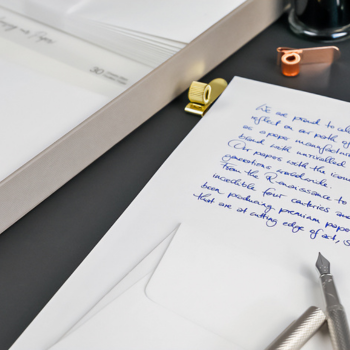 30
We are proud to
reflect on our path of
as a paper manufactur
brand with unrivalled
Our papers with the icon
generations worldwide.
From the Renaissance to
incredible four centuries
been producing premium paper
that are at cutting edge of art,